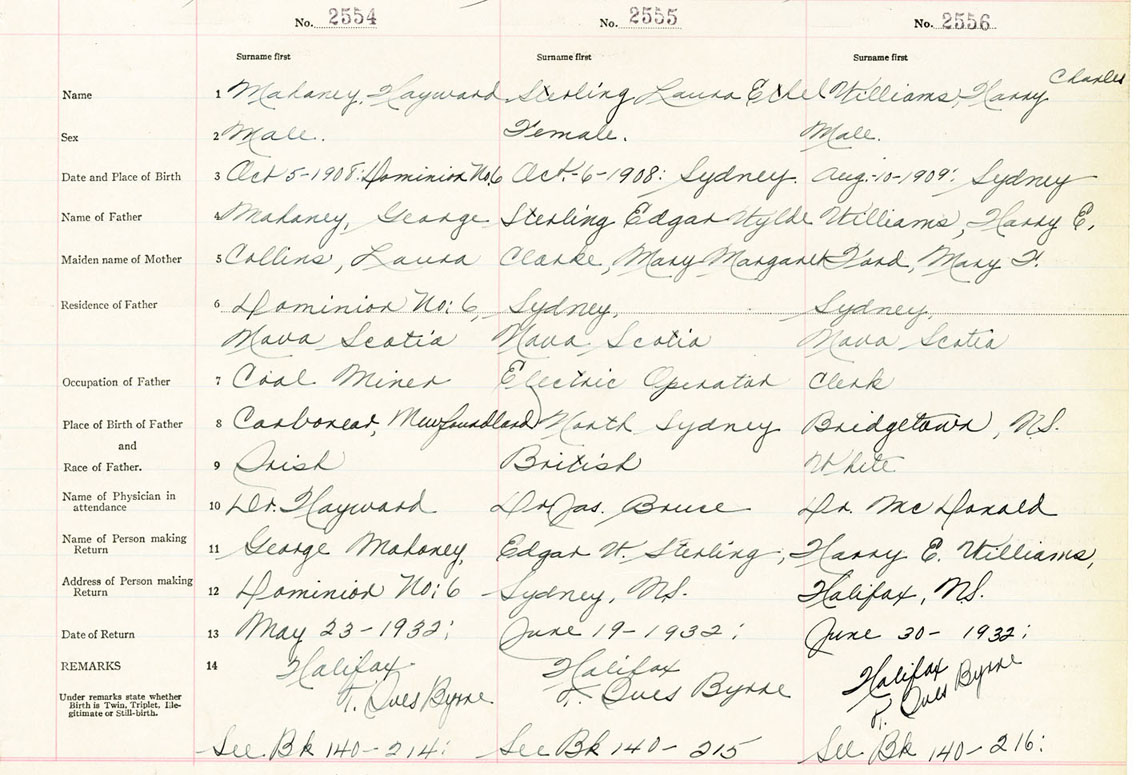 No. 2554 No. 2555 No. 2556
Surname first Surname first Surname first
Charles
Name 1 Mahaney, Hayward Sterling Laura Ethel Williams, Harry
Sex 2 Male. Female. Male.
Date and Place of Birth 3 Oct 5-1908: Dominion No 6 Oct.-6-1908: Sydney. Aug.-10-1909: Sydney
Name of Father 4 Mahoney, George Sterling Edgar Wylde Williams, Harry E.
Maiden name of Mother 5 Collins, Laura Clarke, Mary Margaret Ford, Mary F.
Residence of Father 6 Dominion No: 6, Sydney, Sydney,
Nova Scotia Nova Scotia Nova Scotia
Occupation of Father 7 Coal Miner Electric Operator Clerk
Place of Birth of Father 8 Carbonear, Newfoundland North Sydney Bridgetown, N.S.
and
Race of Father. 9 Irish British White
Name of Physician in
attendance 10 Dr. Hayward Dr Jas. Bruce Dr. McDonald
Name of Person making
Return 11 George Mahoney, Edgar W. Sterling, Harry E. Williams,
Address of Person making
Return 12 Dominion No: 6 Sydney, N.S. Halifax, N.S.
Date of Return 13 May 23-1932; June 19-1932; June 30-1932;
REMARKS 14 Halifax Halifax Halifax
Under remarks state whether
Birth is Twin, Triplet, Ille-
gitimate or Still-birth.
F. Ives Byrne F. Ives Byrne F. Ives Byrne
See Bk 140-214: See Bk 140-215 See Bk 140-216: